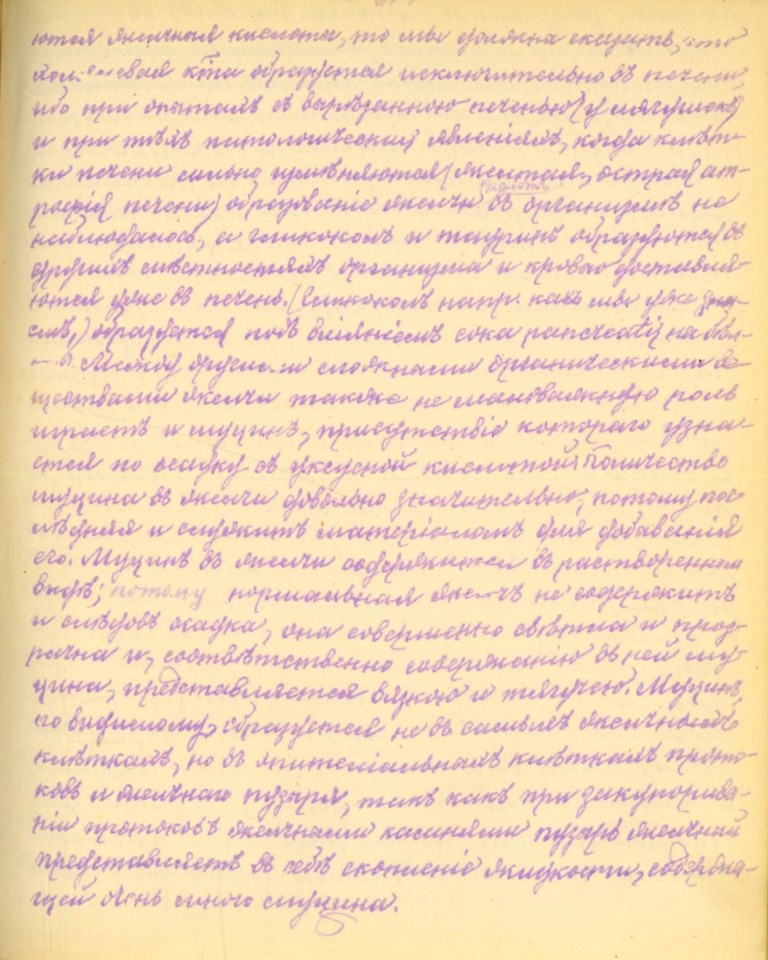 ются желчныя кислоты, то мы должны сказать, что
кта образуется исключительно въ печени,
ибо при опытахъ съ вырѣзанною печенью (у лягушекъ)
и при тѣхъ патологическихъ явленіяхъ, когда клѣт-
ки печени сильно измѣняются (желтая, острая ат-
рофія печени) образованіе желчи въ организмѣ не
наблюдалось, а гликоколъ и тауринъ образуются въ
другихъ мѣстностяхъ организма и кровью доставля-
ются уже въ печень. (Гликоколъ напр. какъ мы уже зна-
емъ,) образуется подъ вліяніемъ сока pancreatis на бѣл-
Между другими сложными органическими ве-
ществами желчи также не маловажную роль
играетъ и муцинъ, присутствіе котораго узна-
ется по осадку съ уксусной кислотой. Количество
муцина въ желчи довольно значительно, потому пос-
лѣдняя и служитъ матеріаломъ для добыванія
его. Муцинъ въ желчи содержится въ растворенномъ
видѣ; потому нормальная желчь не содержитъ
и слѣдовъ осадка, она совершенно свѣтла и проз-
рачна и, соотвѣтственно содержанію въ ней му-
цина, представляется вязкою и тягучею. Муцинъ,
по видимому, образуется не въ самыхъ желчныхъ
клѣткахъ, но въ эпителіальныхъ клѣткахъ прото-
ковъ и желчнаго пузыря, такъ какъ при закупорива-
ніи протоковъ желчными камнями пузырь желчный
представляетъ въ себѣ скопленіе жидкости, содержа-
щей очень много муцина.